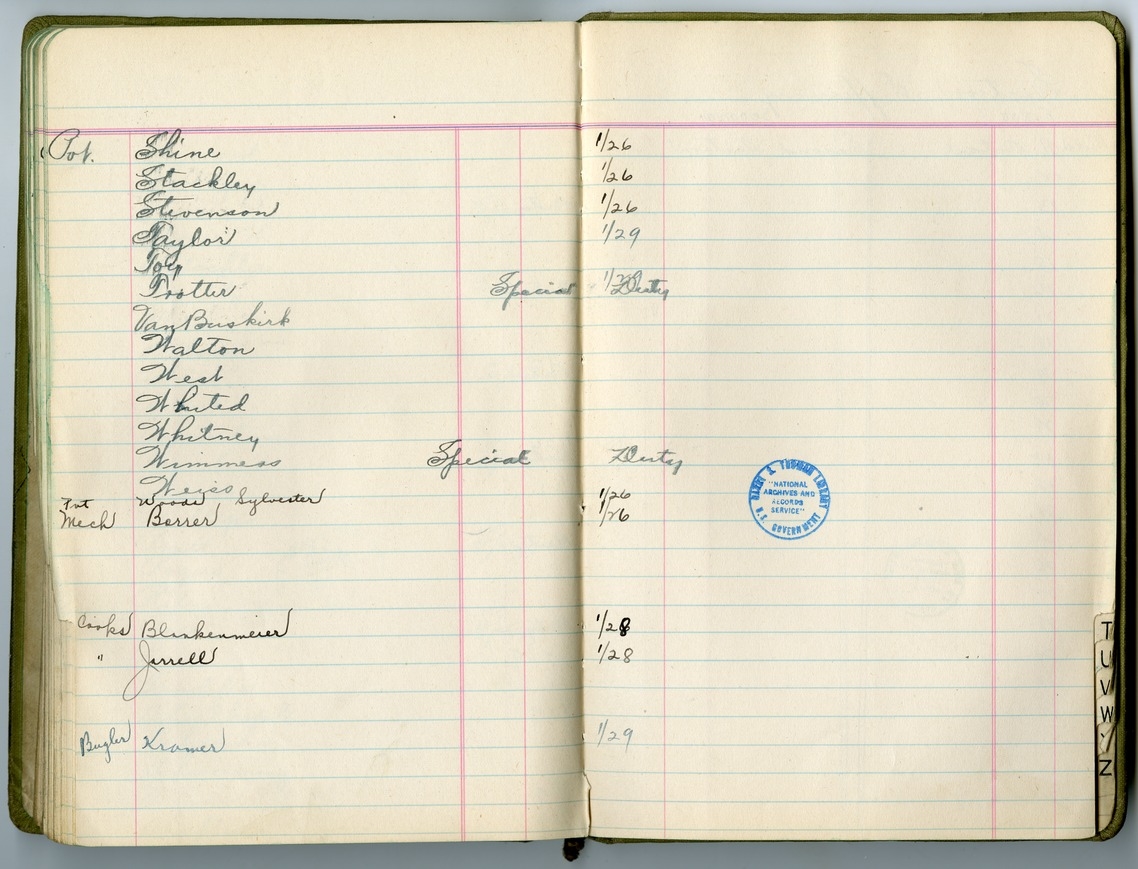 Pvt. Shine 1/26
Stackley 1/26
Stevenson 1/26
Taylor 1/29
Toy
Trotter Special Duty
Van Buskirk
Walton
West
Whited
Whitney
Wimmess Special Duty
Weiss
Pvt Woods Sylvester 1/26
Mech Berrer 1/26
Cooks Blankenmeier 1/28
" Jarrell 1/28
Bugler Kramer 1/29
HARRY S. TRUMAN LIBRARY
"NATIONAL
ARCHIVES AND
RECORDS
SERVICE"
U.S. GOVERNMENT
T
U
V
W
Z